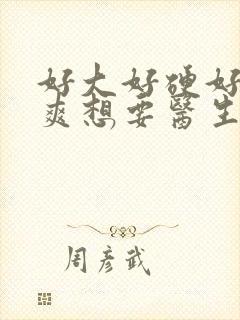 好大好硬好
爽想要醫生
周彥武